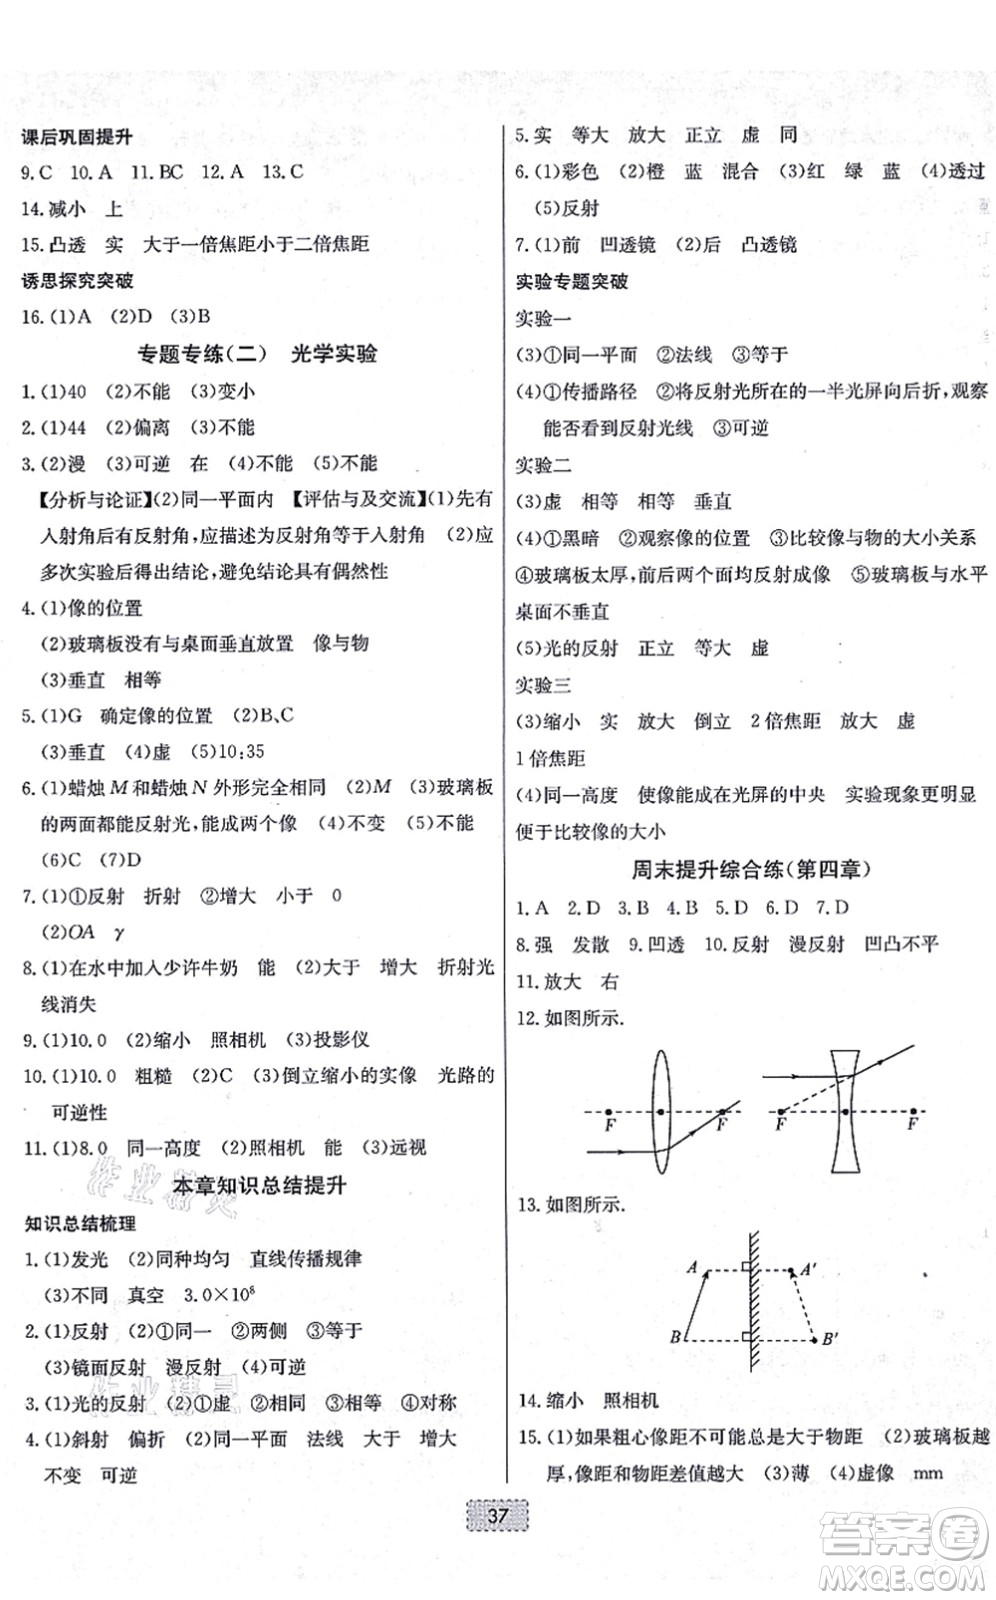 课后巩固提升
9. C 10. A 11. BC 12. A 13. C
14. 减小 上
15. 凸透 实 大于一倍焦距小于二倍焦距
诱思探究突破
16. (1)A (2)D (3)B
专题专练(二) 光学实验
1. (1)40 (2)不能 (3)变小
2. (1)44 (2)偏离 (3)不能
3. (2)漫 (3)可逆 在 (4)不能 (5)不能
【分析与论证】(2)同一平面内 【评估与及交流】(1)先有
入射角后有反射角,应描述为反射角等于入射角 (2)应
多次实验后得出结论,避免结论具有偶然性
4. (1)像的位置
(2)玻璃板没有与桌面垂直放置 像与物
(3)垂直 相等
5. (1)G 确定像的位置 (2)B、C
(3)垂直 (4)虚 (5)10:35
6. (1)蜡烛 M 和蜡烛 N 外形完全相同 (2)M (3)玻璃板
的两面都能反射光,能成两个像 (4)不变 (5)不能
(6)C (7)D
7. (1)①反射 折射 ②增大 小于 0
(2)OA γ
8. (1)在水中加入少许牛奶 能 (2)大于 增大 折射光
线消失
9. (1)10.0 (2)缩小 照相机 (3)投影仪
10. (1)10.0 粗糙 (2)C (3)倒立缩小的实像 光路的
可逆性
11. (1)8.0 同一高度 (2)照相机 能 (3)远视
本章知识总结提升
知识总结梳理
1. (1)发光 (2)同种均匀 直线传播规律
(3)不同 真空 3.0×10⁸
2. (1)反射 (2)①同一 ②两侧 ③等于
(3)镜面反射 漫反射 (4)可逆
3. (1)光的反射 (2)①虚 ②相等 ③相等 ④对称
4. (1)斜射 偏折 (2)同一平面 法线 大于 增大
不变 可逆
5. 实 等大 放大 正立 虚 同
6. (1)彩色 (2)橙 蓝 混合 (3)红 绿 蓝 (4)透过
(5)反射
7. (1)前 凹透镜 (2)后 凸透镜
实验专题突破
实验一
(3)①同一平面 ②法线 ③等于
(4)①传播路径 ②将反射光所在的一半光屏向后折,观察
能否看到反射光线 ③可逆
实验二
(3)虚 相等 相等 垂直
(4)①黑暗 ②观察像的位置 ③比较像与物的大小关系
④玻璃板太厚,前后两个面均反射成像 ⑤玻璃板与水平
桌面不垂直
(5)光的反射 正立 等大 虚
实验三
(3)缩小 实 放大 倒立 2 倍焦距 放大 虚
1 倍焦距
(4)同一高度 使像能成在光屏的中央 实验现象更明显
便于比较像的大小
周末提升综合练(第四章)
1. A 2. D 3. B 4. B 5. D 6. D 7. D
8. 强 发散 9. 凹透 10. 反射 漫反射 凹凸不平
11. 放大 右
12. 如图所示.
F F F F
13. 如图所示.
A A′
B B′
14. 缩小 照相机
15. (1)如果粗心像距不可能总是大于物距 (2)玻璃板越
厚,像距和物距差值越大 (3)薄 (4)虚像 mm
37
作业精灵
作业精灵
答案卷
MXQE.COM